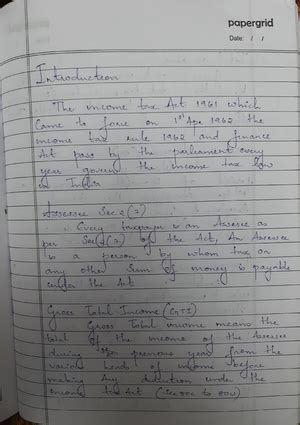 papergrid
Date: / /
Introduction
The income tax Act 1961 which
came to force on 1st Apr 1962 the
income tax rule 1962 and finance
Act pass by the parliament every
year govern the income tax law
in India
Assessee Sec 2 (7)
Every taxpayer is an Assessee as
per Sec 2 (7) of the Act, An Assessee
is a person by whom tax or
any other sum of money is payable
under the Act
Gross Total Income (GTI)
Gross Total income means the
total of the income of the Assessee
during the previous year from the
various heads of income before
making any deduction under the
income tax Act (sec 80C to 80U)